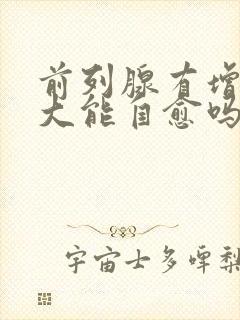 前列腺有增
大能自愈吗
宇宙士多啤梨